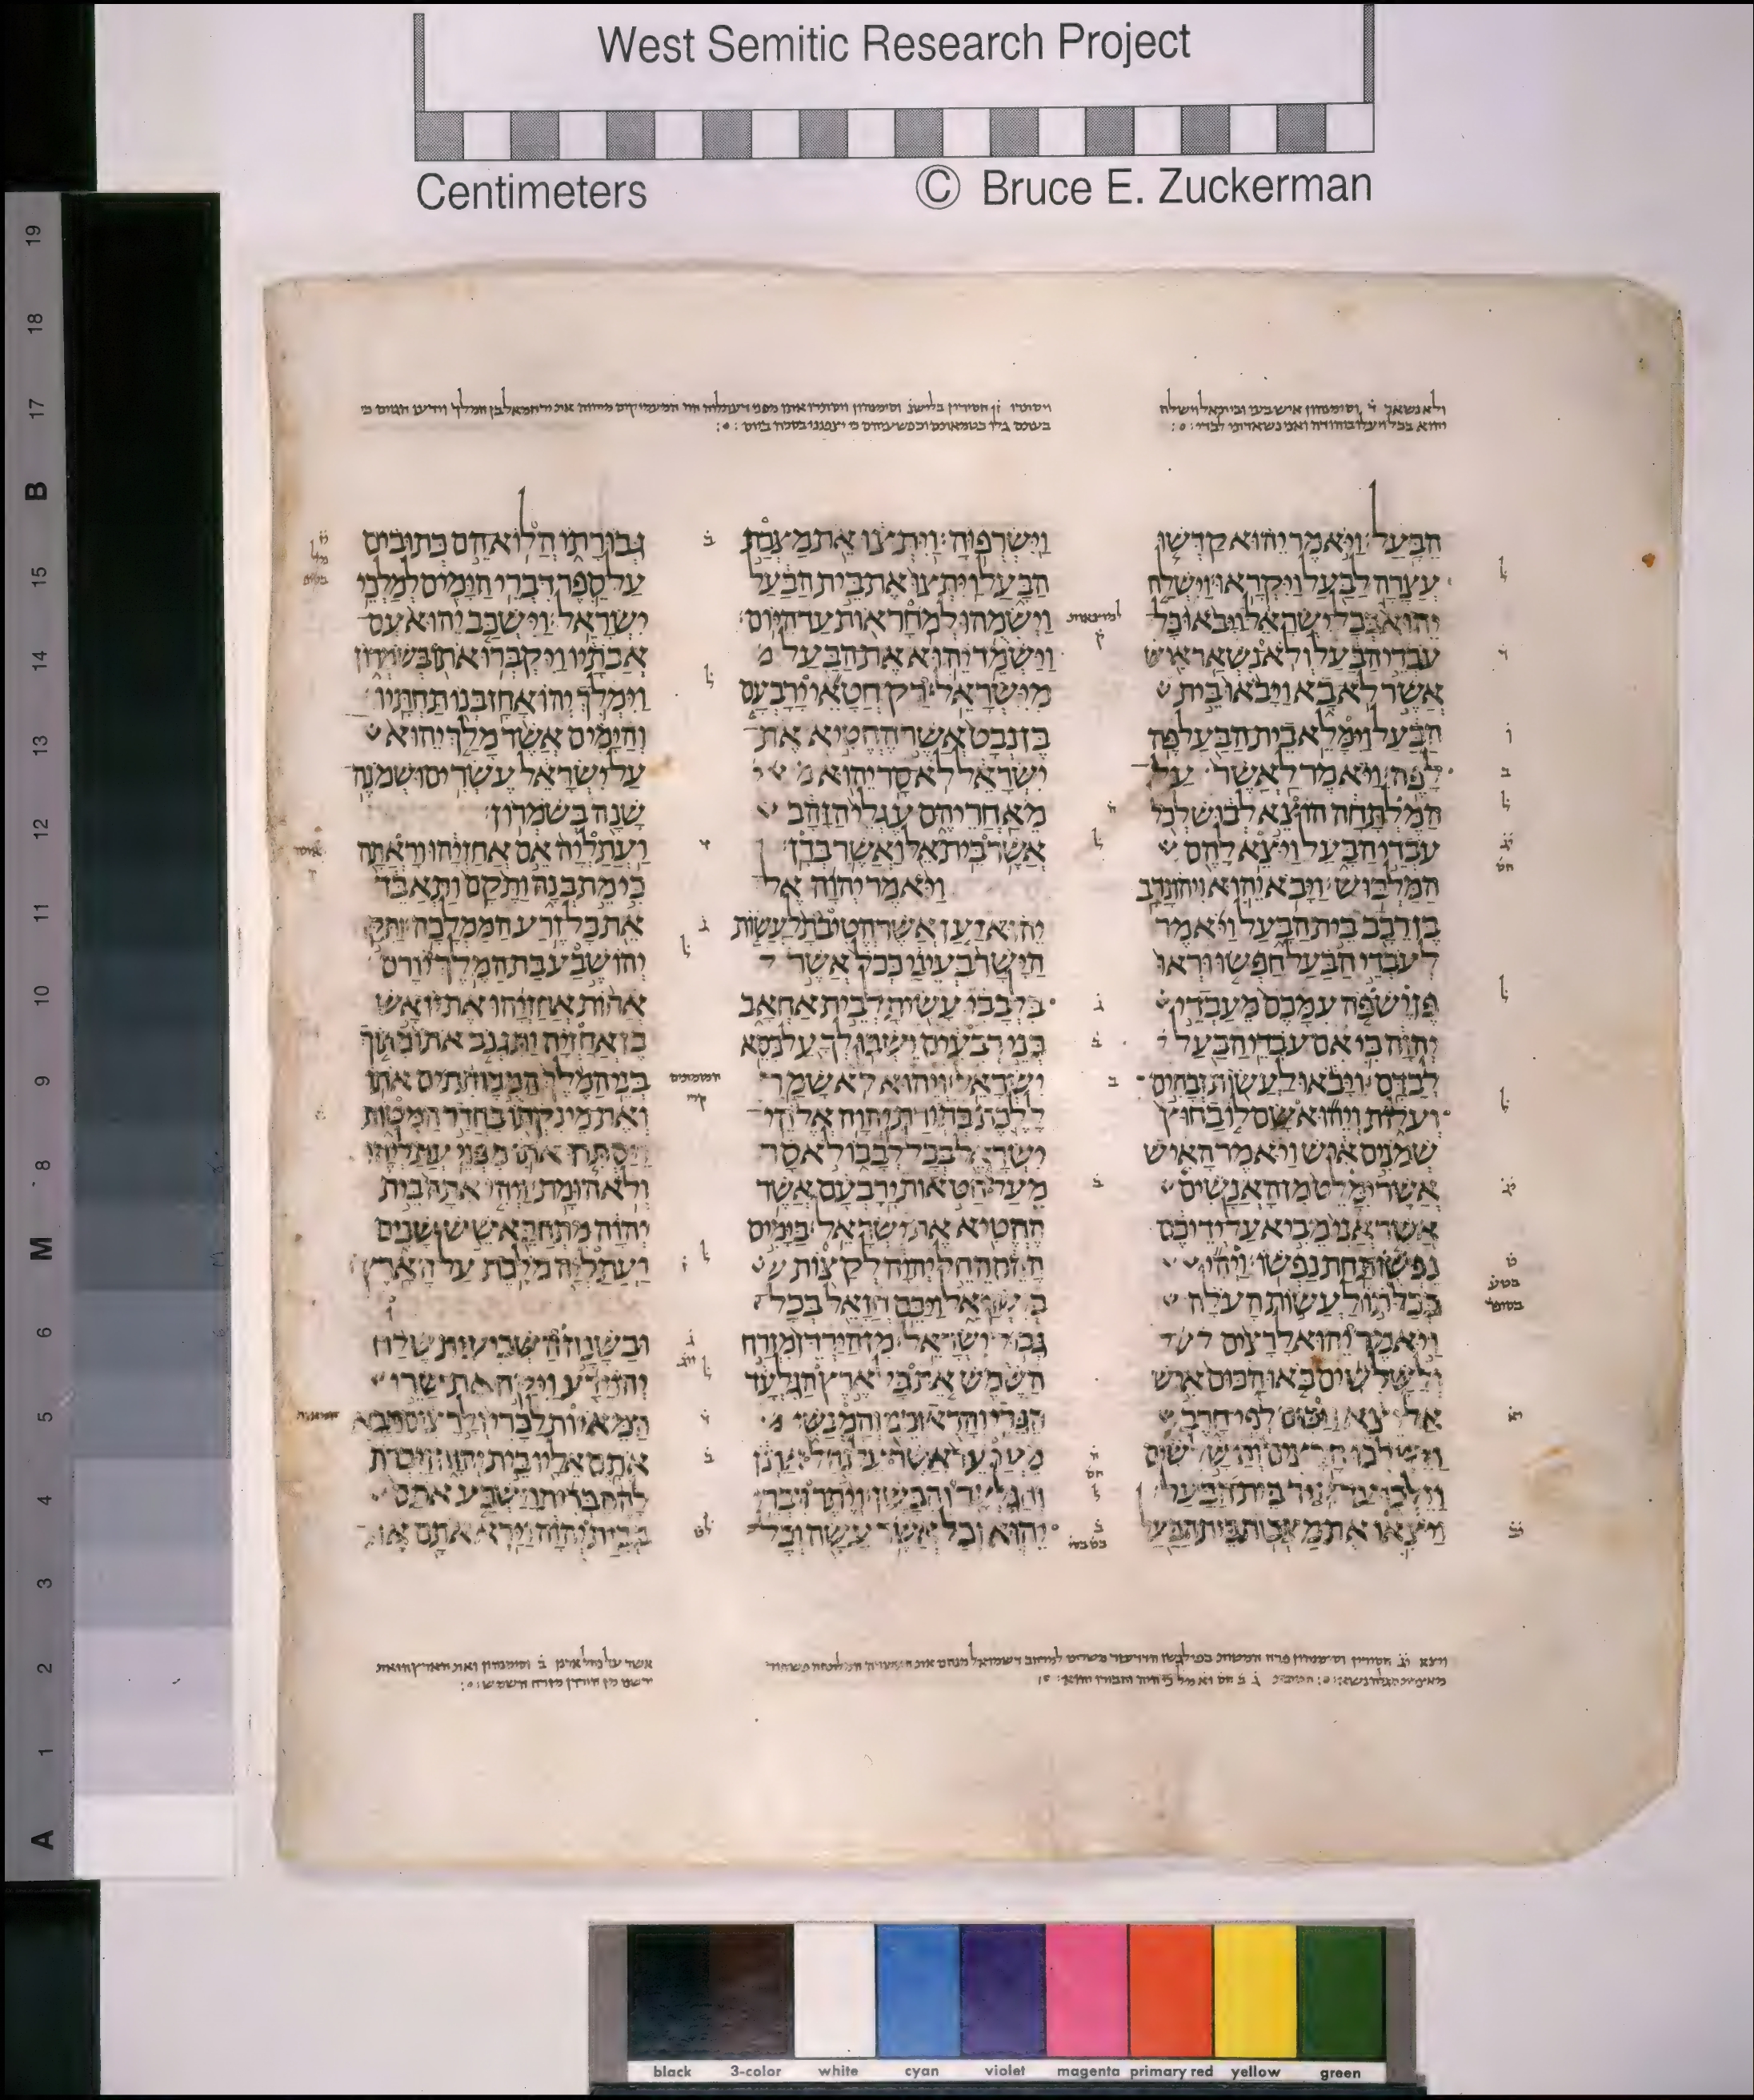 West Semitic Research Project
Centimeters © Bruce E. Zuckerman
הבעל ויאמר יהוא קדשו
עצרה לבעל ויקראו וישלח
יהוא בכל ישראל ויבאו כל
עבדי הבעל ולא נשאר איש
אשר לא בא ויבאו בית
הבעל וימלא בית הבעל פה
לפה ויאמר לאשר על
המלתחה הוצא לבוש לכל
עבדי הבעל ויצא להם
המלבוש ויבא יהוא ויהונדב
בן רכב בית הבעל ויאמר
לעבדי הבעל חפשו וראו
פן יש פה עמכם מעבדי
יהוה כי אם עבדי הבעל
לבדם ויבאו לעשות זבחים
ועלות ויהוא שם לו בחוץ
שמנים איש ויאמר האיש
אשר ימלט מן האנשים
אשר אני מביא על ידיכם
נפשו תחת נפשו ויהי
ככלתו לעשות העלה
ויאמר יהוא לרצים
ולשלשים באו הכום איש
אל יצא ויכום לפי חרב
וישלכו הרצים והשלשים
וילכו עד עיר בית הבעל
ויצאו את מצבות בית הבעל
וישרפוה ויתצו את מצבת
הבעל ויתצו את בית הבעל
וישמהו למחראות עד היום
וישמד יהוא את הבעל
מישראל רק חטאי ירבעם
בן נבט אשר החטיא את
ישראל לא סר יהוא
מאחריהם עגלי הזהב
אשר בית אל ואשר בדן
ויאמר יהוה אל
יהוא יען אשר הטיבת לעשות
הישר בעיני ככל אשר
בלבבי עשית לבית אחאב
בני רבעים ישבו לך על כסא
ישראל ויהוא לא שמר
ללכת בתורת יהוה אלהי
ישראל בכל לבבו לא סר
מעל חטאות ירבעם אשר
החטיא את ישראל בימים
ההם החל יהוה לקצות
בישראל ויכם חזאל בכל
גבול ישראל מן הירדן מזרח
השמש את כל ארץ הגלעד
הגדי והראובני והמנשי
מערער אשר על נחל ארנן
והגלעד והבשן ויתר דברי
יהוא וכל אשר עשה וכל
גבורתו הלוא הם כתובים
על ספר דברי הימים למלכי
ישראל וישכב יהוא עם
אבתיו ויקברו אתו בשמרון
וימלך יהואחז בנו תחתיו
והימים אשר מלך יהוא
על ישראל עשרים ושמנה
שנה בשמרון
ועתליה אם אחזיהו וראתה
כי מת בנה ותקם ותאבד
את כל זרע הממלכה ותקח
יהושבע בת המלך יורם
אחות אחזיהו את יואש
בן אחזיה ותגנב אתו מתוך
בני המלך הממותתים אתו
ואת מינקתו בחדר המטות
ויסתרו אתו מפני עתליהו
ולא הומת ויהי אתה בית
יהוה מתחבא שש שנים
ועתליה מלכת על הארץ
ובשנה השביעית שלח
יהוידע ויקח את שרי
המאיות לכרי ולרצים ויבא
אתם אליו בית יהוה ויכרת
להם ברית וישבע אתם
בבית יהוה וירא אתם את
19 18 17 B 15 14 13 12 11 10 9 8 M 6 5 4 3 2 1 A
black 3-color white cyan violet magenta primary red yellow green